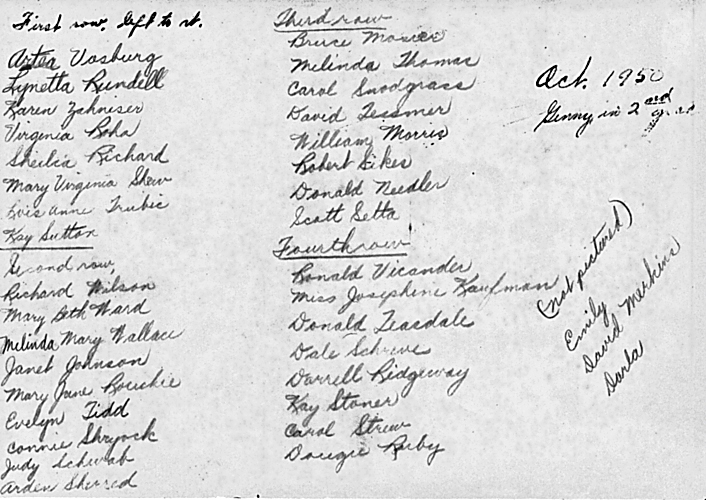 First row. Left to rt.
Artea Vosburg
Lynetta Rundell
Karen Zahniser
Virginia Roha
Sheilia Richard
Mary Virginia Shew
Lois Anne Trubic
Kay Sutton
Second row
Richard Wilson
Mary Beth Ward
Melinda Mary Wallace
Janet Johnson
Mary Jane
Evelyn Tidd
Connie Shryock
Judy Schwab
Arden Sherred
Third row
Bruce Mosier
Melinda Thomas
Carol Snodgrass
David Tessmer
William Morris
Robert Sikes
Donald Needler
Scott Setta
Fourth row
Ronald Vicander
Miss Josephine Kaufman
Donald Teasdale
Dale Schreve
Darrell Ridgeway
Kay Stoner
Carol Strew
Dougie Ruby
Oct. 1950
Ginny in 2nd
(not pictured)
Emily
David Merkins
Darla